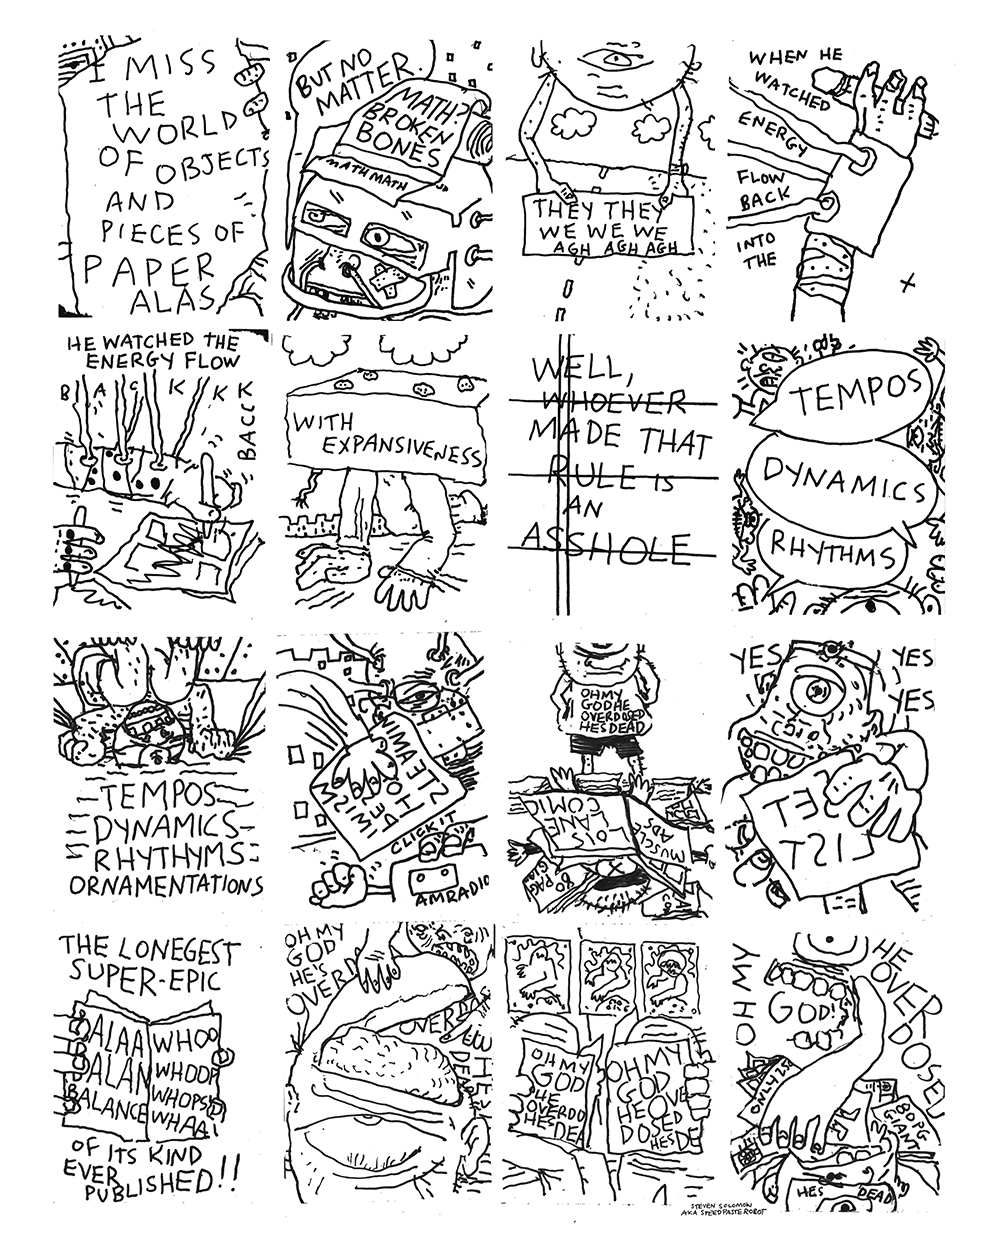 I MISS
THE
WORLD
OF OBJECTS
AND
PIECES OF
PAPER
ALAS
BUT NO
MATTER.
MATH?
BROKEN
BONES
MATHMATH
THEY THEY
WE WE WE
AGH AGH AGH
WHEN HE
WATCHED
ENERGY
FLOW
BACK
INTO
THE
HE WATCHED THE
ENERGY FLOW
BACKKK
BACCK
WITH
EXPANSIVENESS
WELL,
WHOEVER
MADE THAT
RULE IS
AN
ASSHOLE
TEMPOS
DYNAMICS
RHYTHMS
TEMPOS
DYNAMICS
RHYTHYMS
ORNAMENTATIONS
CLICK IT
AM RADIO
OH MY
GOD HE
OVERDOSED
HES DEAD
COMIC
MUSCLE
ADS
YES
YES
YES
SET
LIST
THE LONEGEST
SUPER-EPIC
BALAA
BALAN
BALANCE
WHOO
WHOOP
WHOPS
WHAA
OF ITS KIND
EVER
PUBLISHED!!
OH MY
GOD
HE'S
OVERD
OVERD
OH MY
GOD
HE
OVERDO
HES DEA
OH MY
GOD
HE OVE
DOSED
HES DE
OH MY
GOD!
HE OVERDOSED
ONLY 25¢
BORG
GIANT
HES DEAD
STEVEN SOLOMON
AKA SPEEDPASTEROBOT